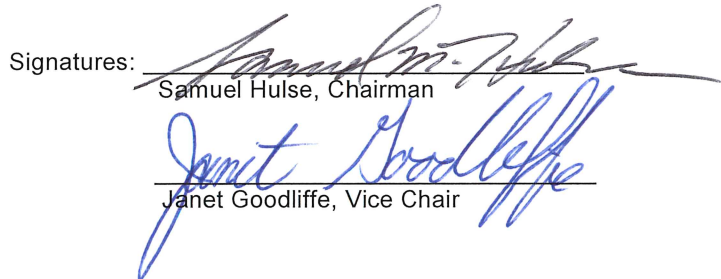 Signatures: Samuel M. Hulse
Samuel Hulse, Chairman
Janet Goodliffe
Janet Goodliffe, Vice Chair